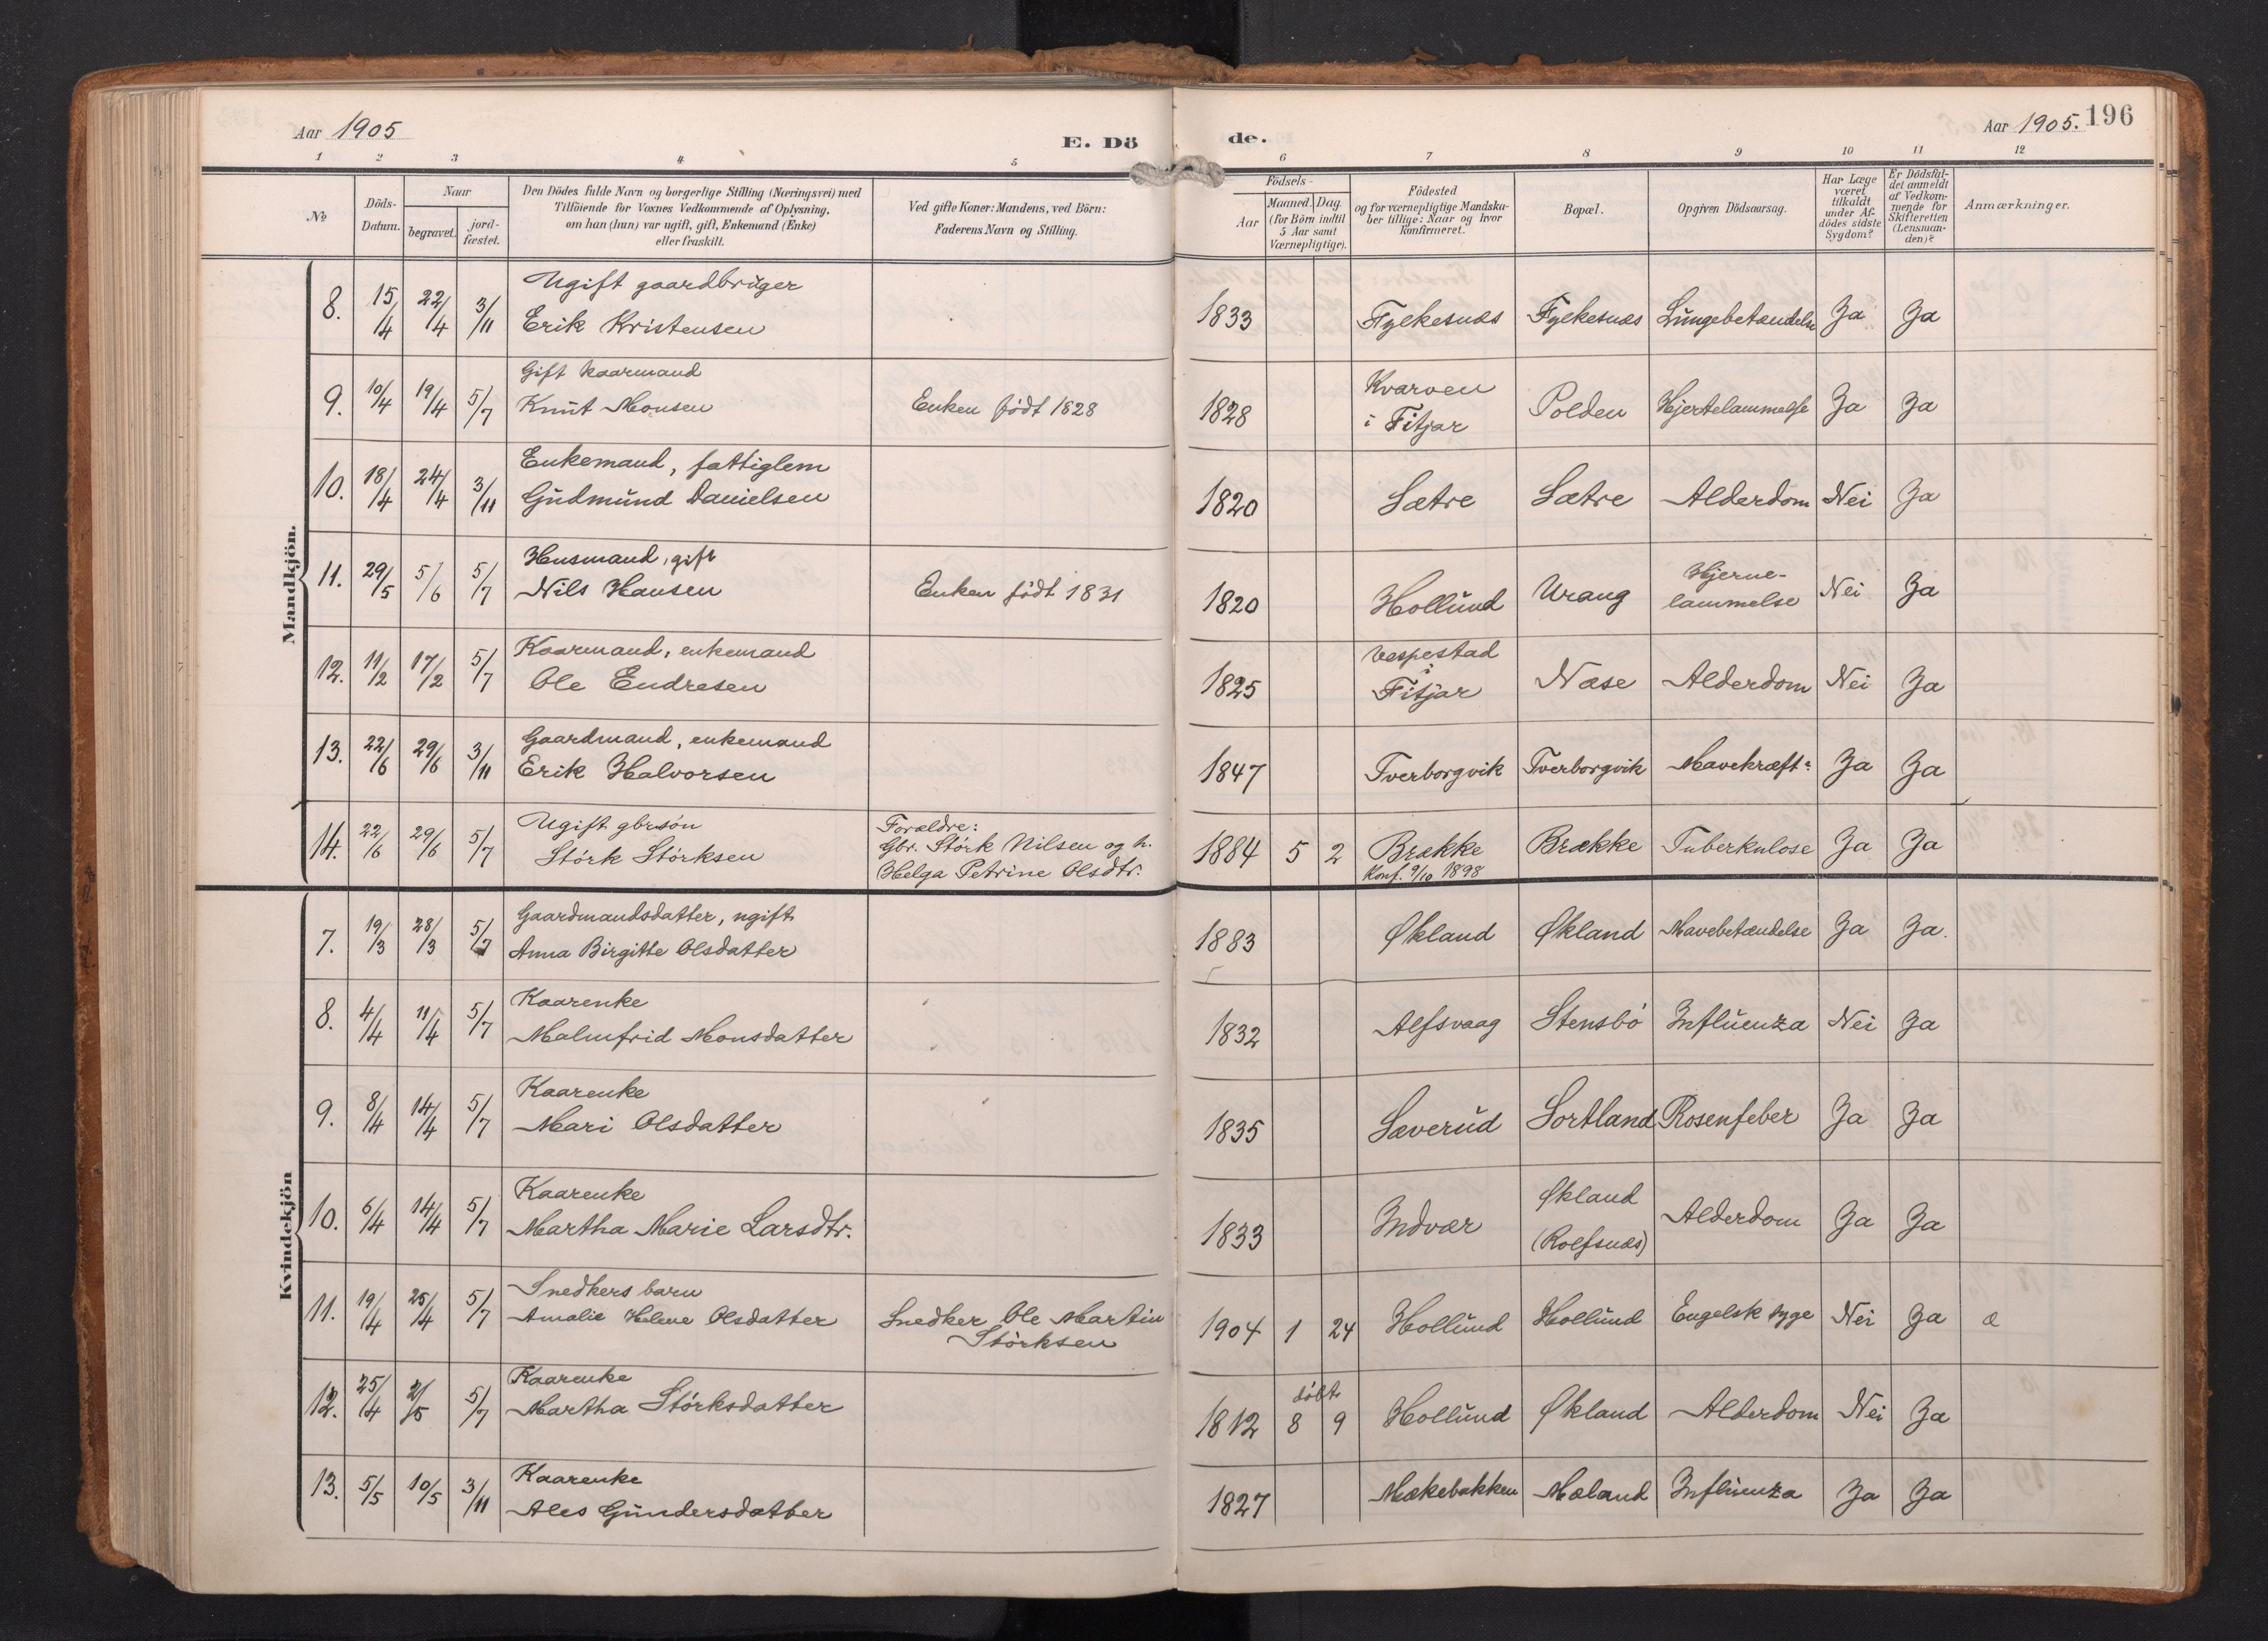 Aar 1905
E. Dö
de.
Aar 1905.
196
1 2 3 4 5 6 7 8 9 10 11 12
No
Döds-Datum.
Naar
begravet.
jord-fæstet.
Den Dödes fulde Navn og borgerlige Stilling (Næringsvei) med
Tilföiende for Voxnes Vedkommende af Oplysning,
om han (hun) var ugift, gift, Enkemand (Enke)
eller fraskilt.
Ved gifte Koner: Mandens, ved Börn:
Faderens Navn og Stilling.
Födsels-
Aar
Maaned. Dag.
(for Börn indtil
5 Aar samt
Værnepligtige).
Födested
og for værnepligtige Mandska-
ber tillige: Naar og hvor
konfirmeret.
Bopæl.
Opgiven Dödsaarsag.
Har Læge
været
tilkaldt
under Af-
dödes sidste
Sygdom?
Er Dödsfal-
det anmeldt
af Vedkom-
mende for
Skifteretten
(Lensman-
den)?
Anmærkninger.
Mandkjön.
Ugift gaardbruger
8. 15/4 22/4 3/11 Erik Kristensen 1833 Fylkesnæs Fylkesnæs Lungebetændelse Ja Ja
Gift kaarmand
Kvarven
9. 10/4 19/4 5/7 Knut Monsen Enken født 1828 1828 i Fitjar Polden Hjertelammelse Ja Ja
Enkemand, fattiglem
10. 18/4 24/4 3/11 Gudmund Danielsen 1820 Sætre Sætre Alderdom Nei Ja
Husmand, gift
Hjerne-
11. 29/5 5/6 5/7 Nils Hansen Enken født 1831 1820 Hollund Urang lammelse Nei Ja
Kaarmand, enkemand
Vespestad
i
12. 11/2 17/2 5/7 Ole Endresen 1825 Fitjar Næse Alderdom Nei Ja
Gaardmand, enkemand
13. 22/6 29/6 3/11 Erik Halvorsen 1847 Tverborgvik Tverborgvik Mavekræft Ja Ja
Ugift gbrsøn
Forældre:
Gbr. Størk Nilsen og h.
14. 22/6 29/6 5/7 Størk Størksen Helga Petrine Olsdtr. 1884 5 2 Brække Brække Tuberkulose Ja Ja
Konf. 9/10 1898
Kvindekjön
Gaardmandsdatter, ugift
7. 19/3 28/3 5/7 Anna Birgitte Olsdatter 1883 Økland Økland Mavebetændelse Ja Ja.
Kaarenke
8. 4/4 11/4 5/7 Malmfrid Monsdatter 1832 Alfsvaag Stensbø Influenza Nei Ja
Kaarenke
9. 8/4 14/4 5/7 Mari Olsdatter 1835 Sæverud Sortland Rosenfeber Ja Ja
Kaarenke
Økland
10. 6/4 14/4 5/7 Martha Marie Larsdtr. 1833 Indvær (Rolfsnæs) Alderdom Ja Ja
Snedkers barn
11. 19/4 25/4 5/7 Amalie Helene Olsdatter Snedker Ole Martin 1904 1 24 Hollund Hollund Engelsk syge Nei Ja æ
Størksen
Kaarenke
døbt
12. 25/4 2/5 5/7 Martha Størksdatter 1812 8 9 Hollund Økland Alderdom Nei Ja
Kaarenke
13. 5/5 10/5 3/11 Ales Gundersdatter 1827 Mækebakken Mæland Influenza Ja Ja